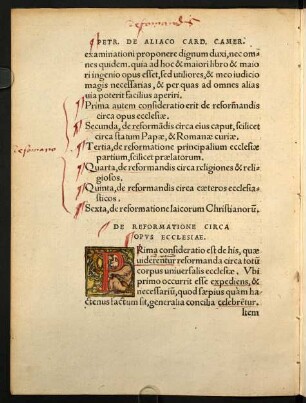 Reformandis
PETR. DE ALIACO CARD. CAMER.
examinationi proponere dignum duxi, nec om̃
nes quidem. quia ad hoc & maiori libro & ma
iori ingenio opus esset, sed utiliores, & meo iudicio
magis necessarias, & per quas ad omnes alias
uia poterit facilius aperiri.
Prima autem consideratio erit de reform̃andis
circa opus ecclesiæ.
Secunda, de reformãdis circa eius caput, scilicet
circa statum Papæ, & Romanæ curiæ.
Tertia, de reformatione principalium ecclesiæ
partium, scilicet prælatorum.
Quarta, de reformandis circa religiones & reli-
giosos.
Quinta, de reformandis circa cæteros ecclesia-
sticos.
Sexta, de reformatione laicorum Christianorũ.
DE REFORMATIONE CIRCA
OPVS ECCLESIAE.
PRima consideratio est de his, quæ
uiderentur reformanda circa totũ
corpus uniuersalis ecclesiæ. Vbi
primo occurrit esse expediens, &
necessariũ, quod sæpius quàm ha
ctenus factum sit, generalia concilia celebrẽtur.
Item